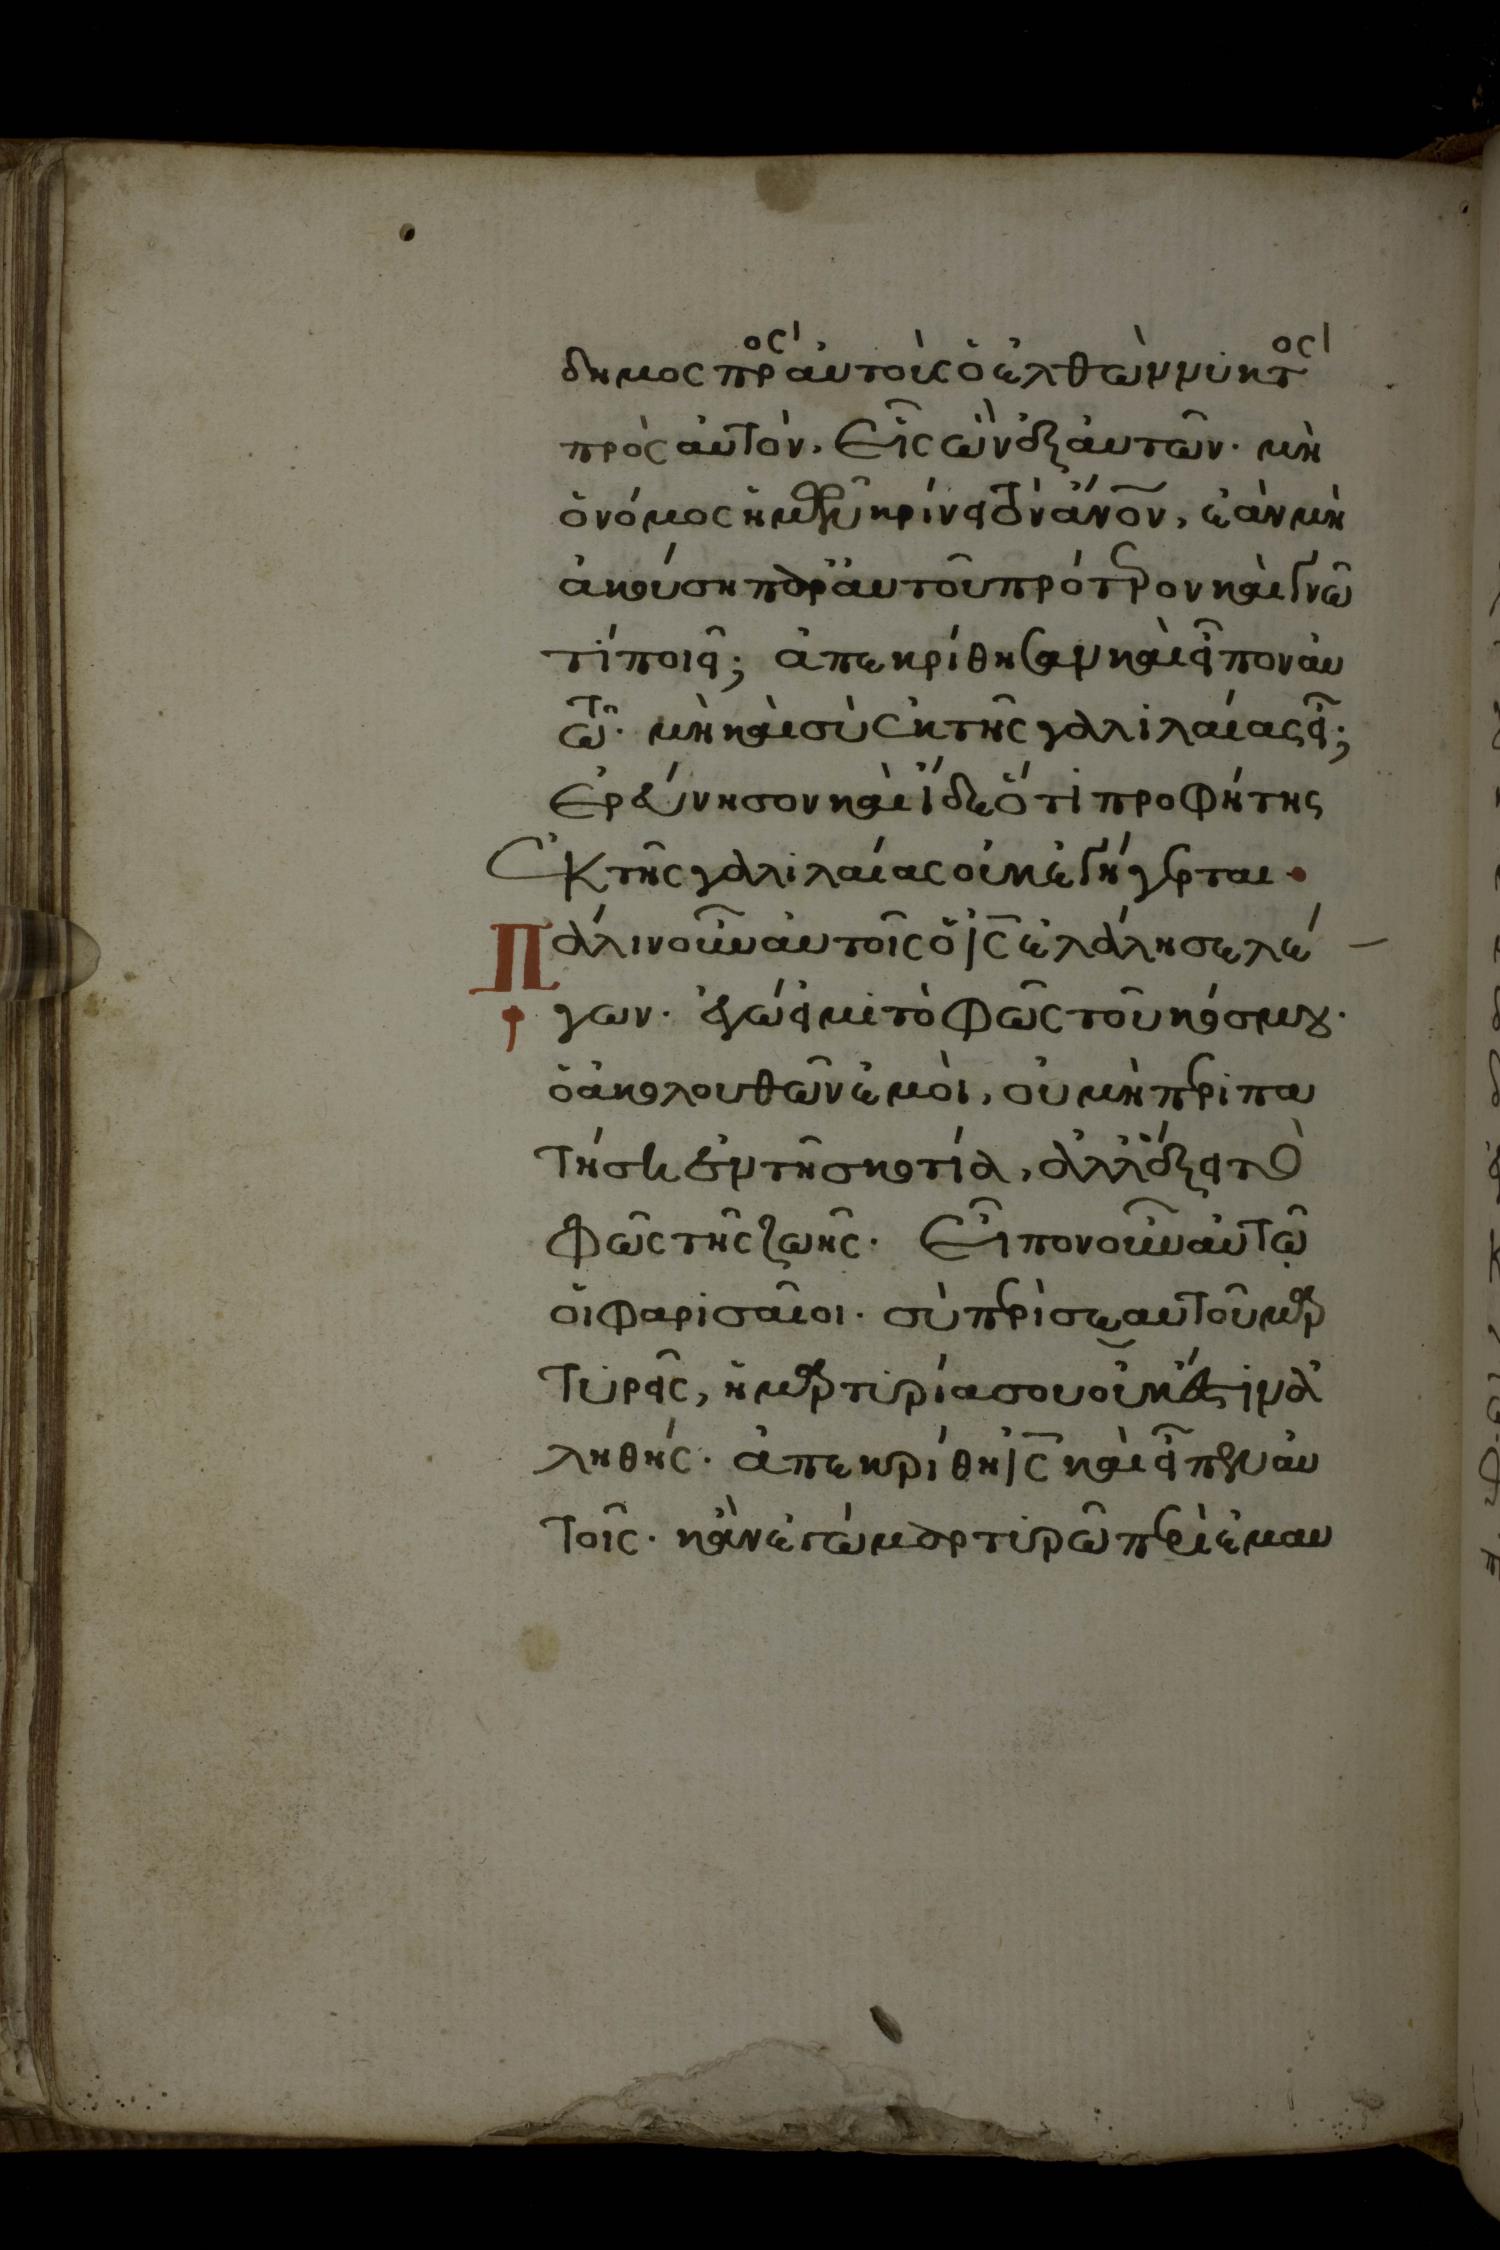 δημος προς αὐτοὺς ὁ ἐλθὼν νυκτὸς
πρὸς αὐτὸν. Εἷς ὢν ἐξ αυτῶν. μὴ
ὁ νόμος ἡμῶν κρίνει τὸν ἄνον, ἐὰν μὴ
ἀκούση παρ' αυτοῦ πρότερον καὶ γνῶ
τί ποιεῖ; ἀπεκρίθησαν καὶ εἶπον αὐ
τῶ. μὴ καὶ σὺ ἐκ της γαλιλαίας εἶ;
Ερεύνησον καὶ ἴδε ὅτι προφήτης
ἐκ τῆς γαλιλαίας οὐκ ἐγήγερται.
Πάλιν οὖν αυτοῖς ὁ ις ἐλάλησε λέ
γων. ἐγώ εἰμι τὸ φῶς τοῦ κόσμου.
ὁ ἀκολουθῶν ἐμοὶ, οὐ μὴ περιπα
τήσει ἐν τῆ σκοτία, ἀλλ' ἕξει τὸ
φῶς τῆς ζωῆς. Εἶπον οὖν αὐτῶ
ὁι φαρισαῖοι. σὺ περὶ σεαυτοῦ μαρ
τυρεῖς, ἡ μαρτυρία σου οὐκ ἔστιν ἀ
ληθής. ἀπεκρίθη ις καὶ εἶπεν αὐ
τοῖς. κἂν ἐγὼ μαρτυρῶ περὶ ἐμαυ